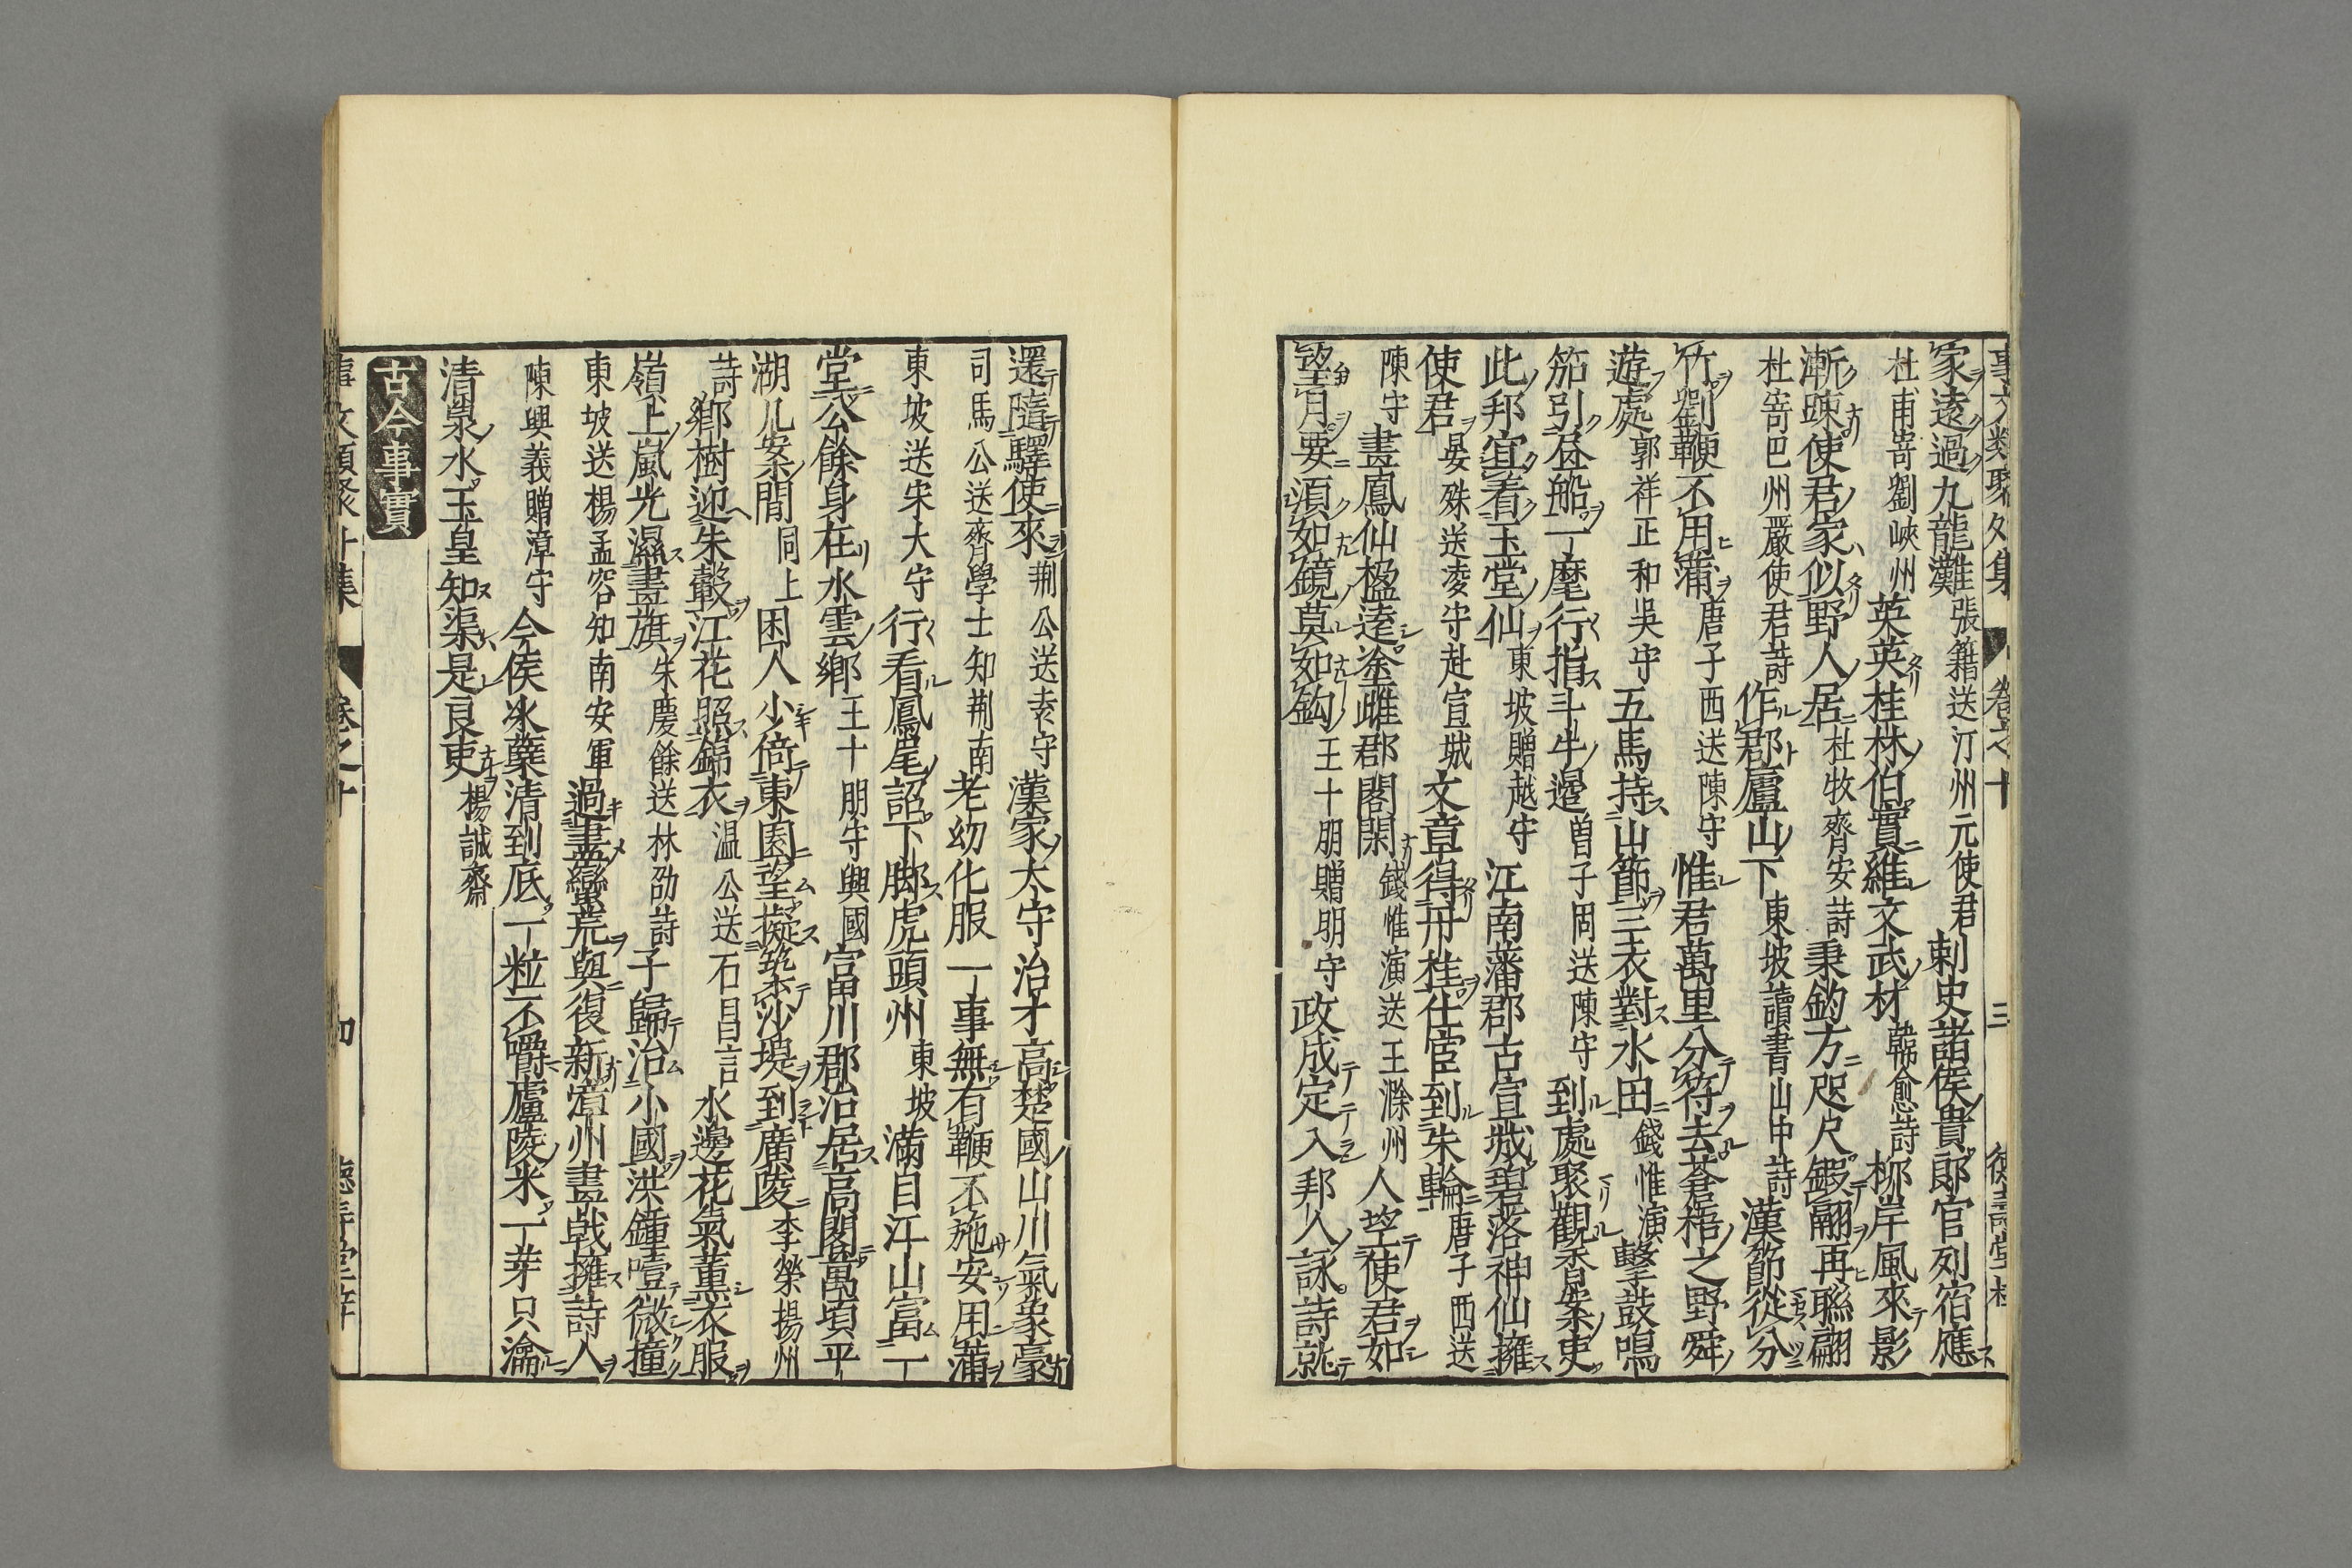 事文類聚外集 卷之十 三 德壽堂梓
家遠過九龍灘張籍送汀州元使君刺史諸侯貴郎官列宿應
杜甫寄劉峽州英英桂林伯實維文武材韓愈詩柳岸風來影
漸踈使君家似野人居杜牧齊安詩秉鈞方咫尺鎩翮再聯翩
杜寄巴州嚴使君詩作郡廬山下東坡讀書山中詩漢節從分
竹劉鞭不用蒲唐子西送陳守惟君萬里分符去蒼梧之野舜
遊處郭祥正和吳守五馬持山節三衣對水田錢惟演擊鼓鳴
笳引昼船一麾行指斗牛邊曽子固送陳守到處聚觀香案吏
此邦宜着玉堂仙東坡贈越守江南藩郡古宣城碧落神仙擁
使君晏殊送凌守赴宣城文章得丹桂仕宦到朱輪唐子西送
陳守畫鳳仙楹逺塗雌郡閣閑錢惟演送王滁州人望使君如
望月要須如鏡莫如鈎王十朋贈明守政成定入邦人詠詩就
還隨驛使來荆公送袁守漢家太守治才高楚國山川氣象豪
司馬公送齊學士知荆南老幼化服一事無有鞭不施安用蒲
東坡送宋大守行看鳳尾詔下脚虎頭州東坡滿目江山富一
堂公餘身在水雲鄉王十朋守興國富川郡治居高閣萬頃平
湖几案間同上困人小倚東園望擬築沙堤到廣陵李榮揚州
詩鄉樹迎朱轂江花照錦衣温公送石昌言水邊花氣薰衣服
嶺上嵐光濕畫旗朱慶餘送林劭詩子歸治小國洪鐘噎微撞
東坡送楊孟容知南安軍過盡蠻荒與復新漳州畫戟擁詩人
陳興義贈漳守今侯氷蘗清到底一粒不嚼廬陵米一芽只瀹
清泉水玉皇知渠是良吏楊誠齋
古今事實